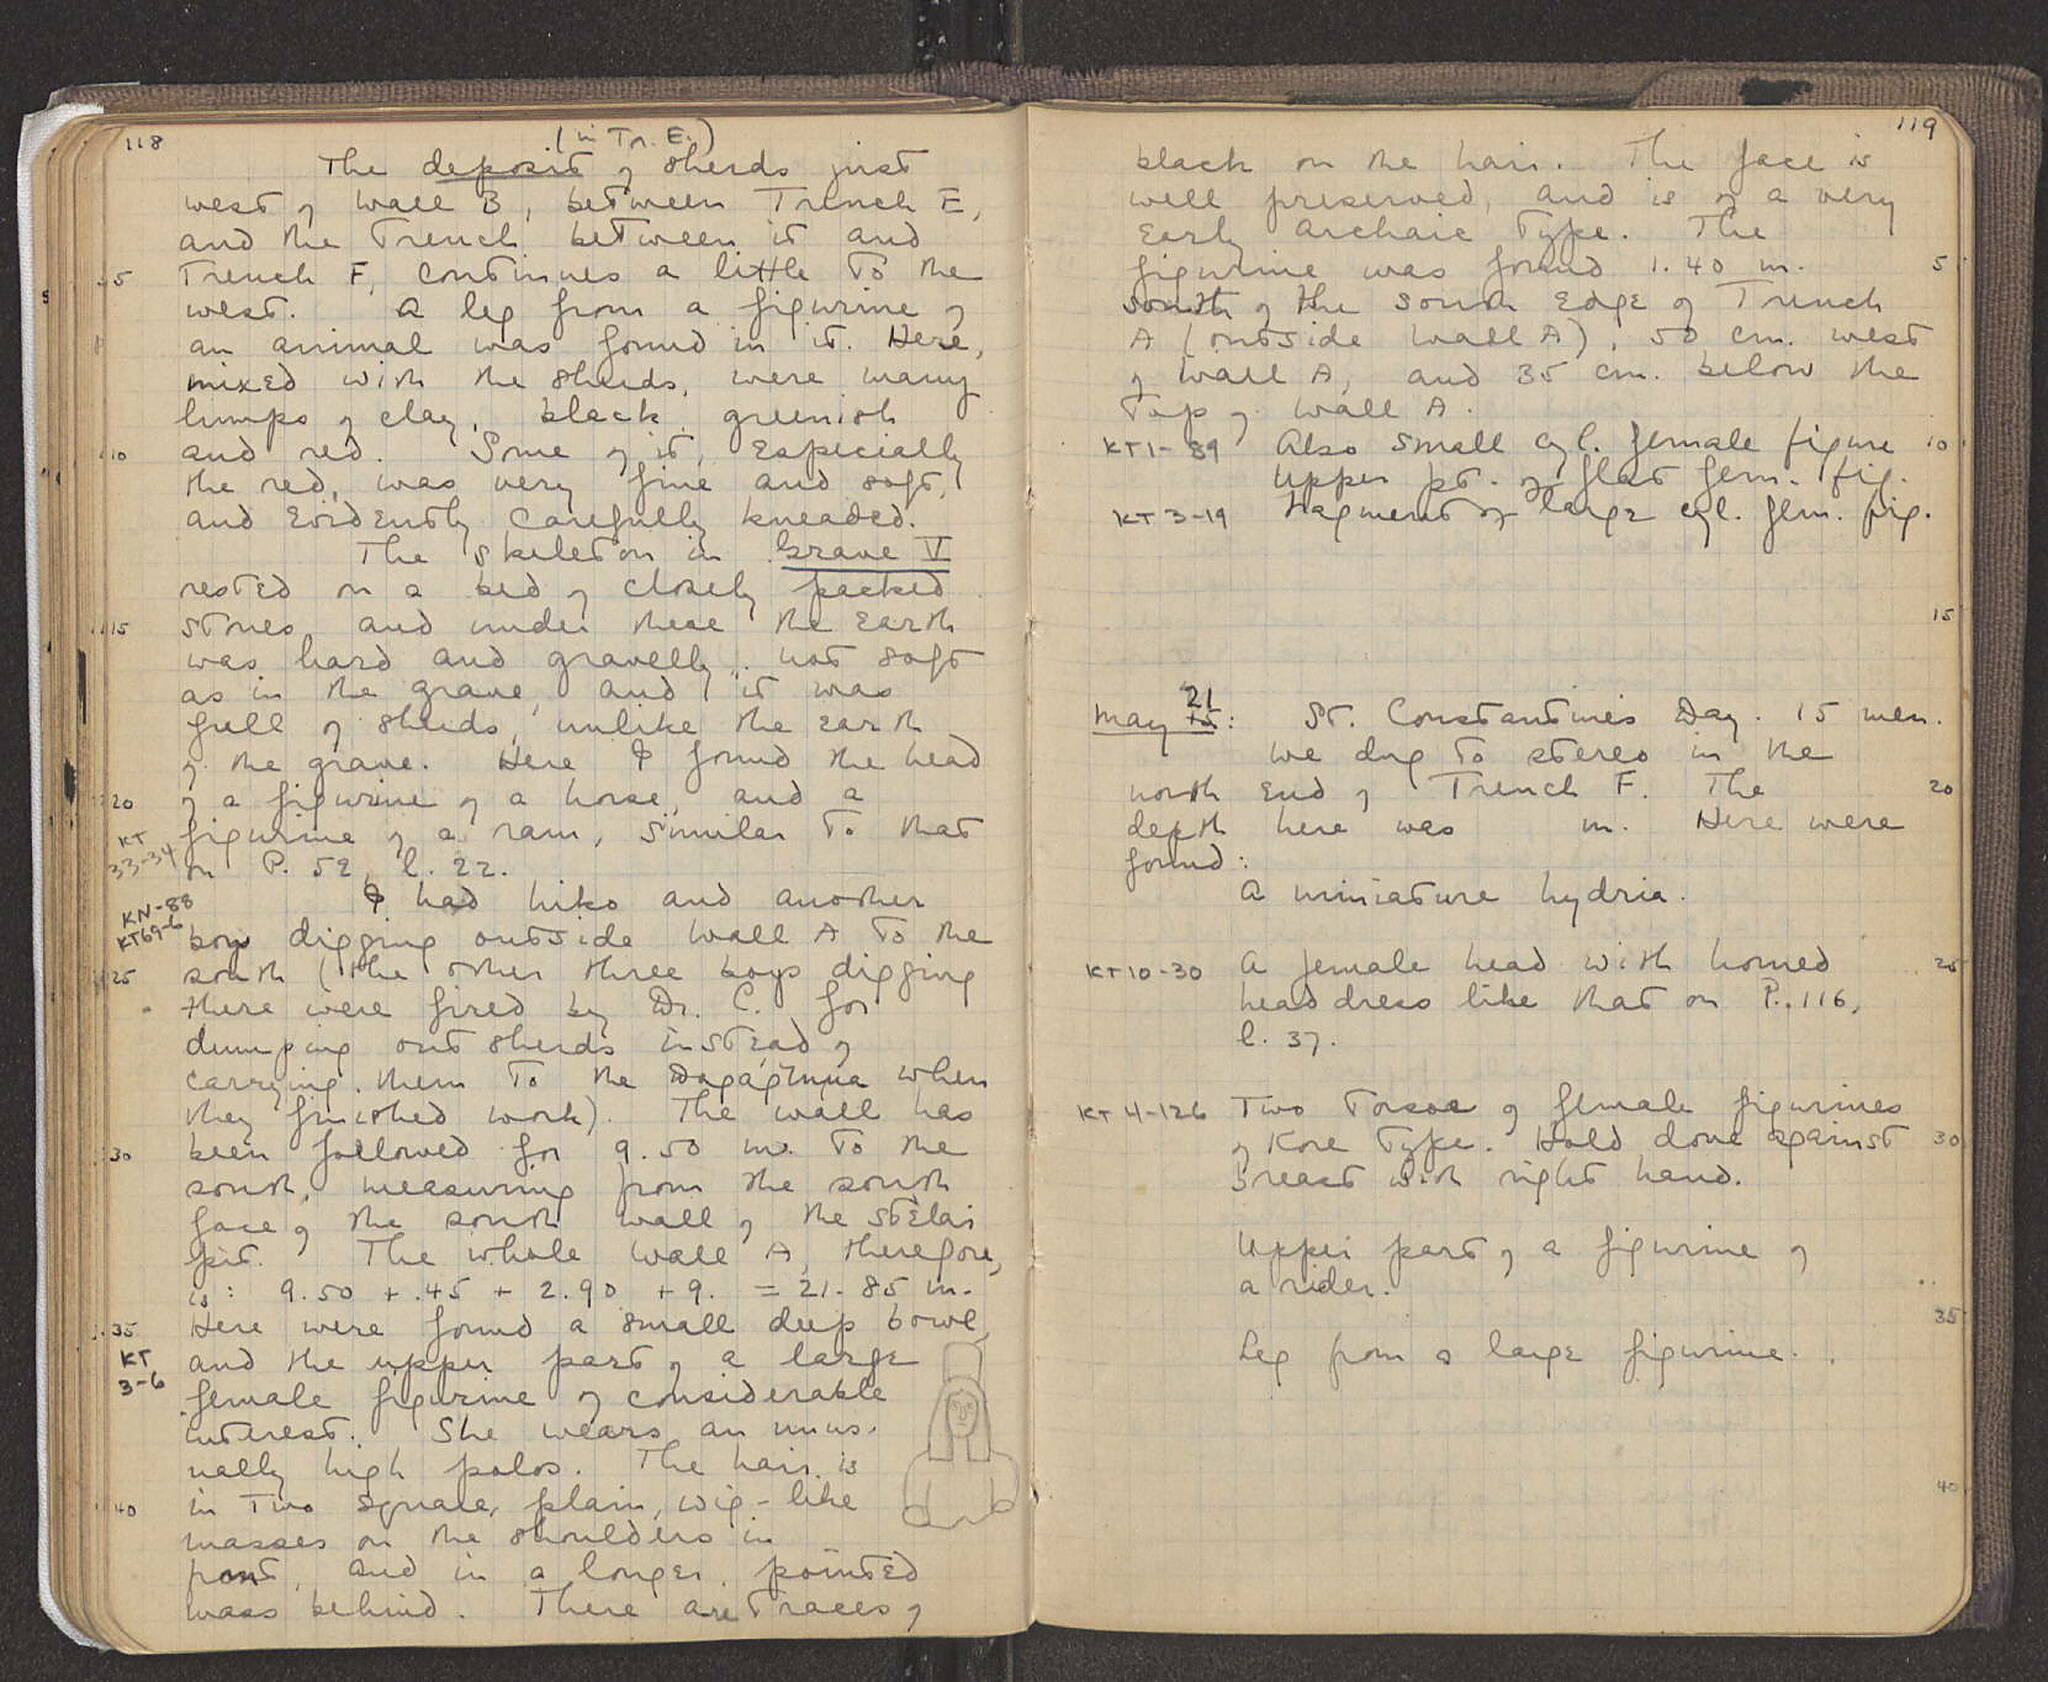 118
(in Tr. E.)
The deposit of sherds just
west of Wall B, between Trench E,
and the trench between it and
5 Trench F, continues a little to the
west. A leg from a figurine of
an animal was found in it. Here,
mixed with the sherds, were many
lumps of clay, black, greenish
10 and red. Some of it, especially
the red, was very fine and soft,
and evidently carefully kneaded.
The skeleton in Grave V
rested on a bed of closely packed
15 stones and under these the earth
was hard and gravelly, not soft
as in the grave, and it was
full of sherds, unlike the earth
of the grave. Here I found the head
20 of a figurine of a horse, and a
KT figurine of a ram, similar to that
33-34 on P. 52, l. 22.
KN-88 I had Niko and another
KT69-6 boy digging outside Wall A to the
25 south (the other three boys digging
there were fired by Dr. C. for
dumping out sherds instead of
carrying them to the when
they finished work). The wall has
30 been followed for 9.50 m. to the
south, measuring from the south
face of the south wall of the stelai
pit. The whole Wall A, therefore,
is: 9.50 + .45 + 2.90 + 9. = 21.85 m.
35 Here were found a small deep bowl,
KT and the upper part of a large
3-6 female figurine of considerable
interest. She wears an unus-
ually high polos. The hair is
40 in two square, plain, wig-like
masses on the shoulders in
front, and in a longer, pointed
mass behind. There are traces of
119
black on the hair. The face is
well preserved, and is of a very
early archaic type. The
figurine was found 1.40 m. 5
south of the south edge of Trench
A (outside Wall A), 50 cm. west
of Wall A, and 35 cm. below the
top of Wall A.
KT1-89 Also small cyl. female figure 10
Upper pt. of flat fem. fig.
KT 3-19 Fragment of large cyl. fem. fig.
15
May 21: St. Constantine's Day. 15 men.
We dug to stereo in the
north end of Trench F. The 20
depth here was m. Here were
found:
A miniature hydria.
KT10-30 A female head with horned 25
headdress like that on P. 116,
l. 37.
KT 4-126 Two torsos of female figurines
of Kore type. Hold dove against 30
breast with right hand.
Upper part of a figurine of
a rider.
35
Leg from a large figurine.
40